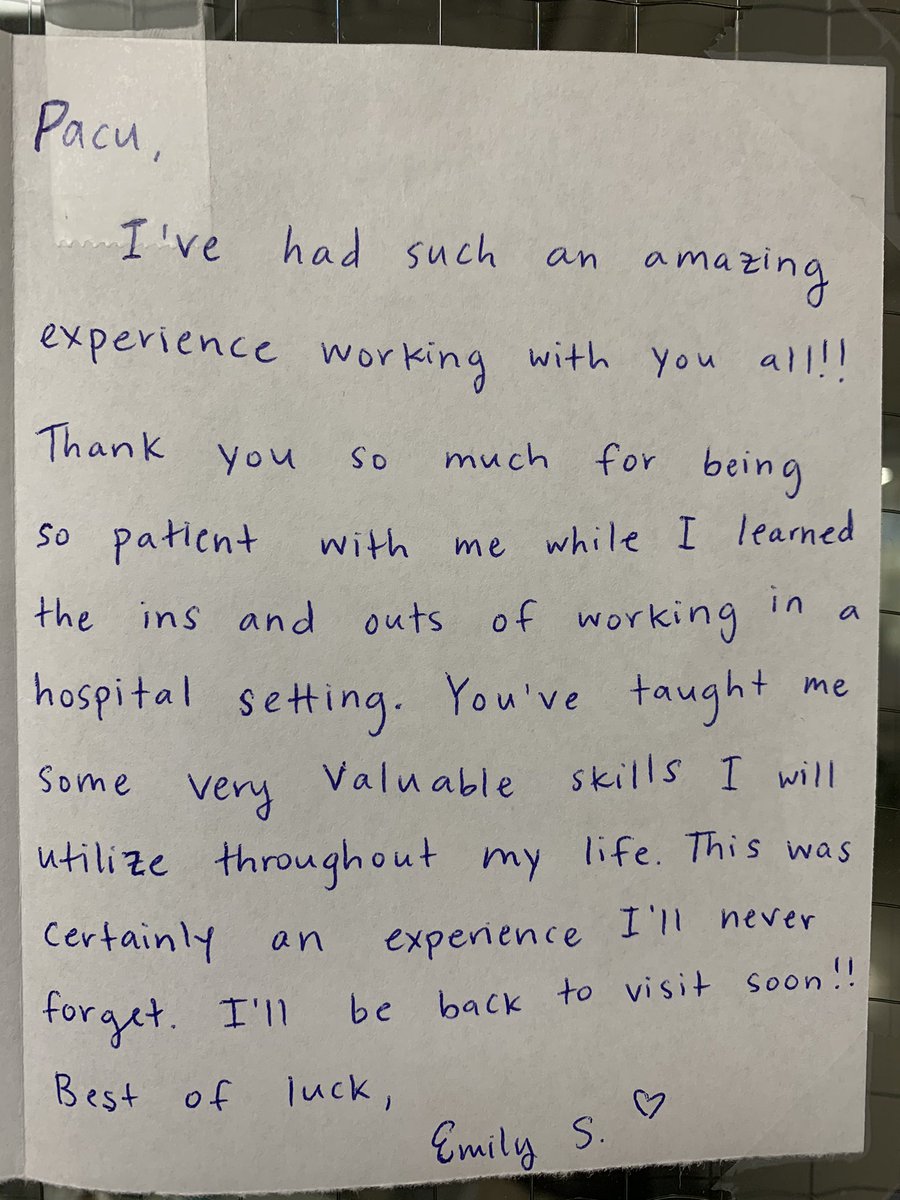 Pacu,
I've had such an amazing
experience working with you all!!
Thank you so much for being
so patient with me while I learned
the ins and outs of working in a
hospital setting. You've taught me
some very valuable skills I will
utilize throughout my life. This was
certainly an experience I'll never
forget. I'll be back to visit soon!!
Best of luck,
Emily S. ♡